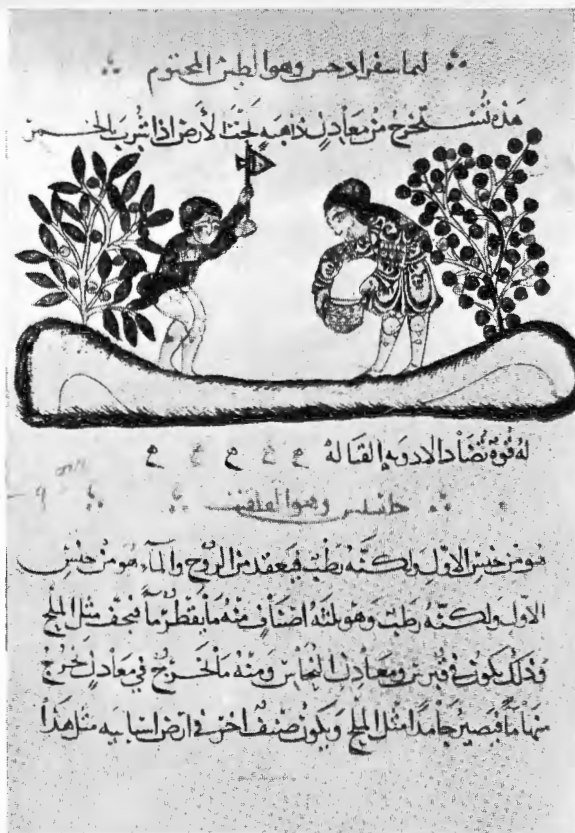 لیماسفراد حس وهوا لطين المختوم
هذه تستخرج من معادن ذاهبه تحت الأرض اذا شرب الخمر
له قوة تضاد الادويه القتاله
وهو القلقنت
هو من جنس الاول ولكنه رطب فيعقد من الروح والماء هو من جنس
الاول ولكنه رطب وهو ثلثة اصناف منه ما يقطر ماً فيجف مثل الملح
وذلك يكون في قبرس ومعادن النحاس ومنه ما تخرج في معادن تخرج
منها ماً فيصير جامداً مثل الملح ويكون صنف اخر في ارض اسبانيه مثل هذا